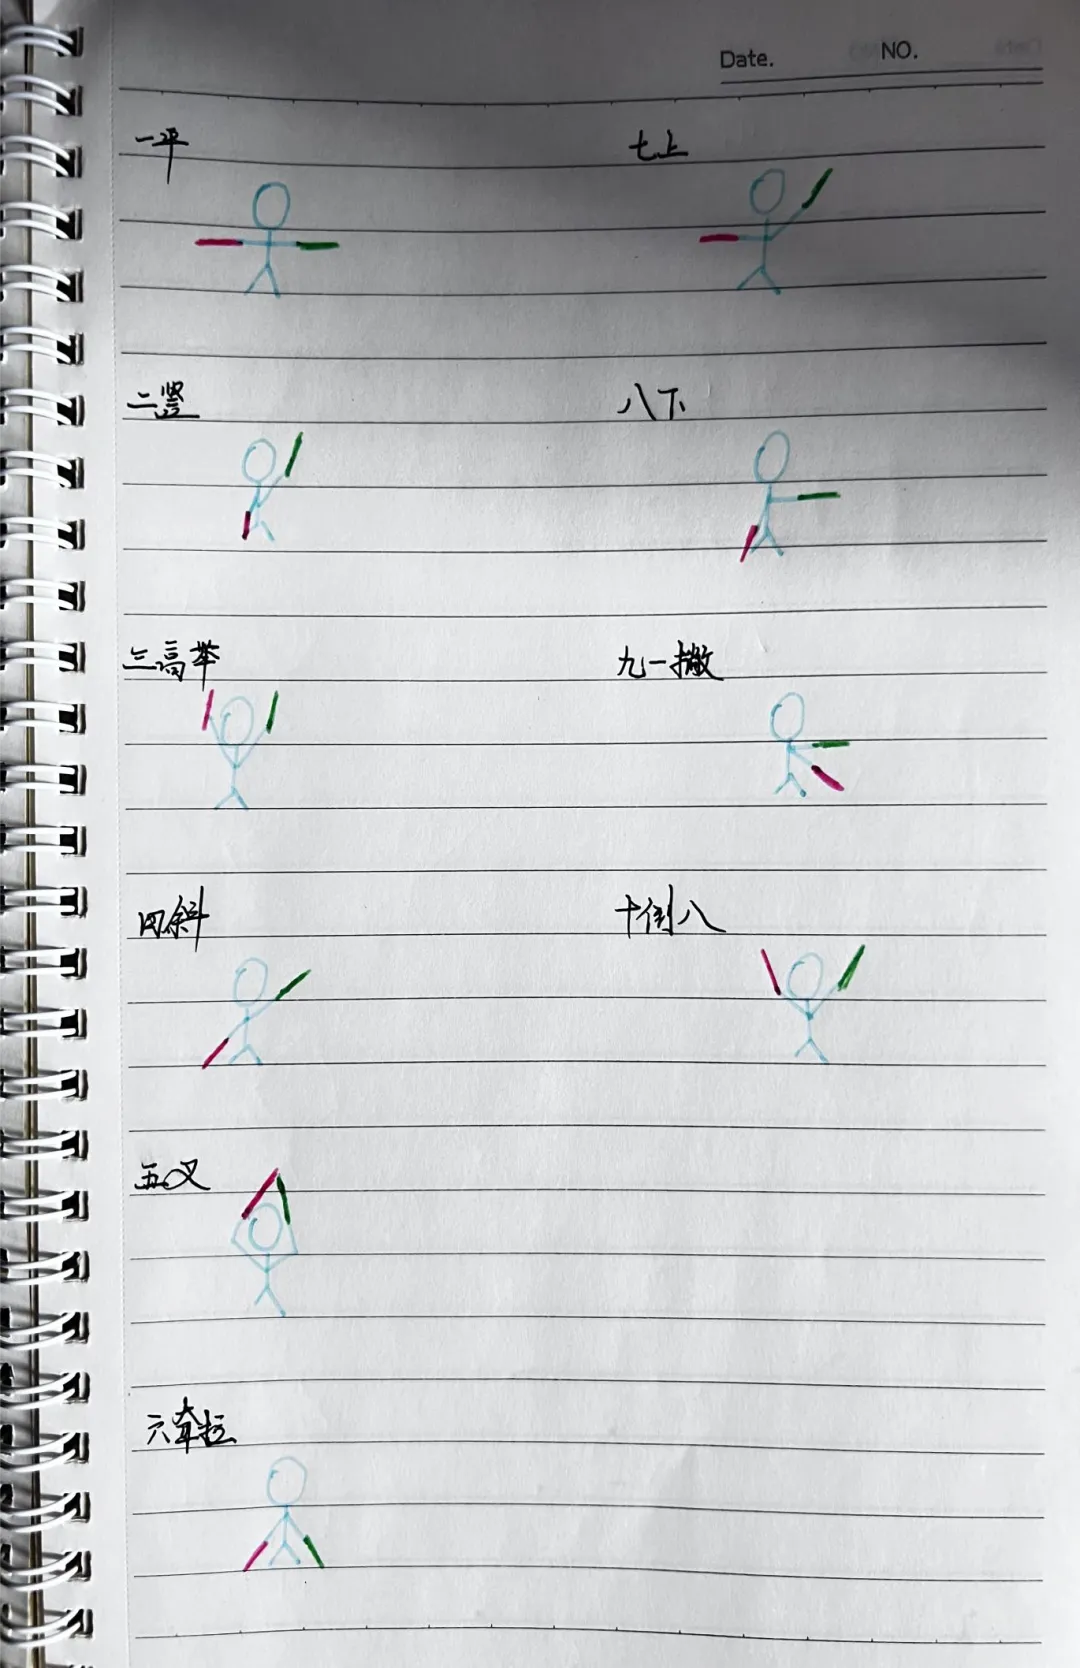 Date. NO.
一平
七上
二竖
八下
三高举
九一撇
四斜
十倒八
五叉
六牵拉